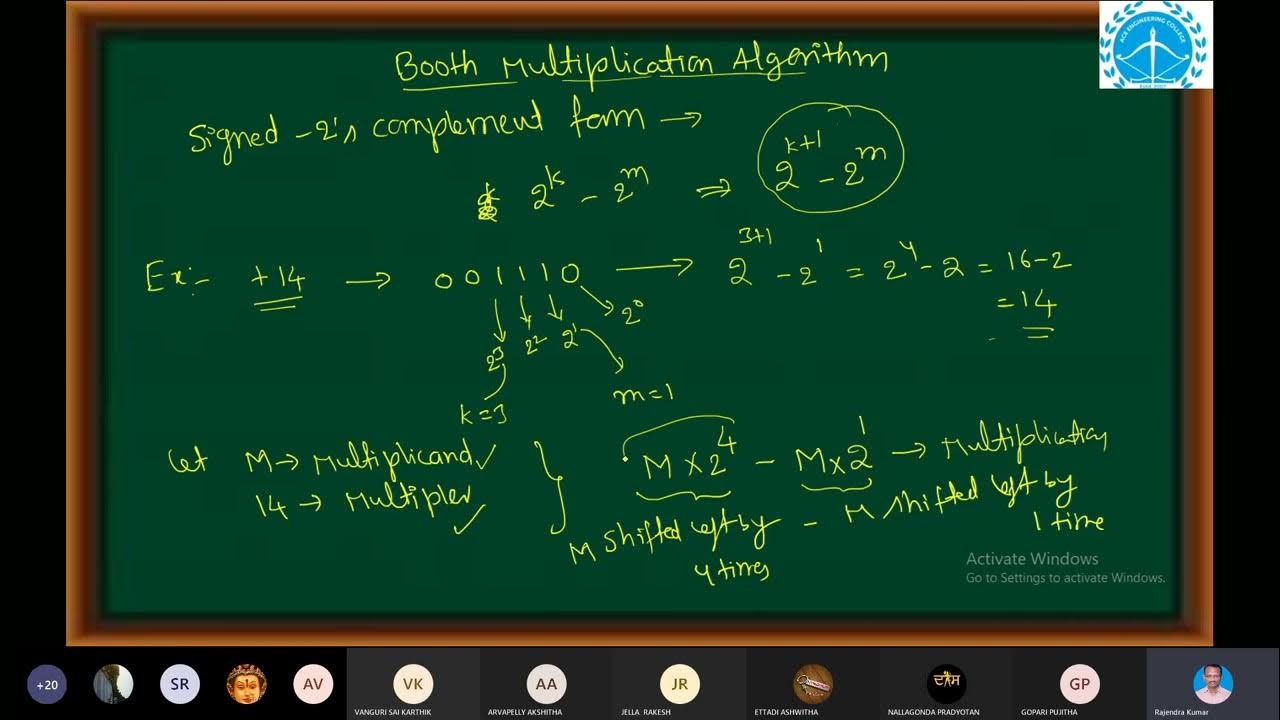 ACE ENGINEERING COLLEGE
Booth Multiplication Algorithm
Signed -2's complement form →
2^k - 2^m ⇒ 2^(k+1) - 2^m
Ex:- +14 → 001110 → 2^(3+1) - 2^1 = 2^4 - 2 = 16-2
= 14
2^3 2^2 2^1 2^0
k=3 m=1
Let M → Multiplicand ✓ M×2^4 - M×2^1 → Multiplication
14 → Multiplier ✓ M shifted left by 4 times - M shifted left by 1 time
Activate Windows
Go to Settings to activate Windows.
+20 SR AV VK AA JR ਦਾਸ GP
VANGURI SAI KARTHIK ARVAPELLY AKSHITHA JELLA RAKESH ETTADI ASHWITHA NALLAGONDA PRADYOTAN GOPARI PUJITHA Rajendra Kumar